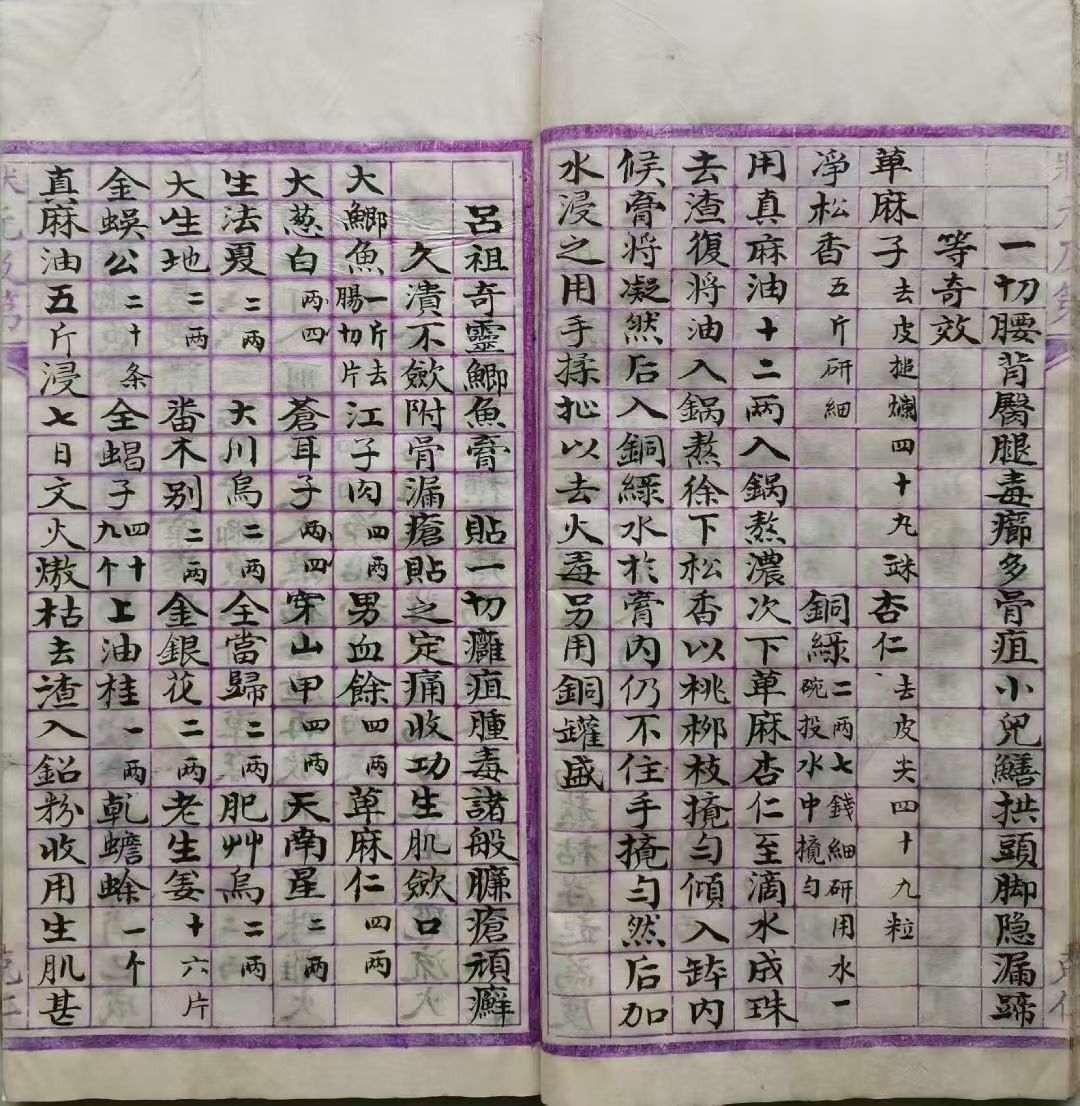 一切腰背臀腿毒癤多骨疽小兒鱔拱頭脚隐漏蹄
等奇效
草麻子去皮搥爛四十九𥺁杏仁去皮尖四十九粒
淨松香五斤研細銅綠二两七錢細研用水一碗投水中攪勻
用真麻油十二两入鍋熬濃次下草麻杏仁至滴水成珠
去渣復將油入鍋熬徐下松香以桃柳枝攪勻傾入缽内
候膏將凝然后入銅綠水於膏内仍不住手攪勻然后加
水浸之用手揉扯以去火毒另用銅罐盛
呂祖奇靈鯽魚膏 貼一切癰疽腫毒諸般臁瘡頑癬
久潰不歛附骨漏瘡貼之定痛收功生肌歛口
大鯽魚一斤去腸切片江子肉四两男血餘四两草麻仁四两
大葱白四两蒼耳子四两穿山甲四两天南星二两
生法夏二两大川烏二两全當歸二两肥艸烏二两
大生地二两畨木别二两金銀花二两老生姜十六片
金蜈公二十条全蝎子四十九个上油桂一两乹蟾蜍一个
真麻油五斤浸七日文火熬枯去渣入鉛粉收用生肌甚